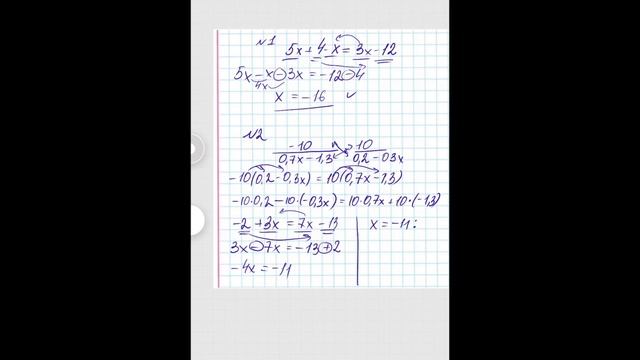 №1
5x + 4 - x = 3x - 12
5x - x - 3x = -12 - 4
4x
x = -16 ✓
№2
-10 / 0,7x - 1,3 10 / 0,2 - 0,3x
-10(0,2 - 0,3x) = 10(0,7x - 1,3)
-10·0,2 - 10·(-0,3x) = 10·0,7x + 10·(-1,3)
-2 + 3x = 7x - 13
3x - 7x = -13 + 2
-4x = -11
x = -11 :